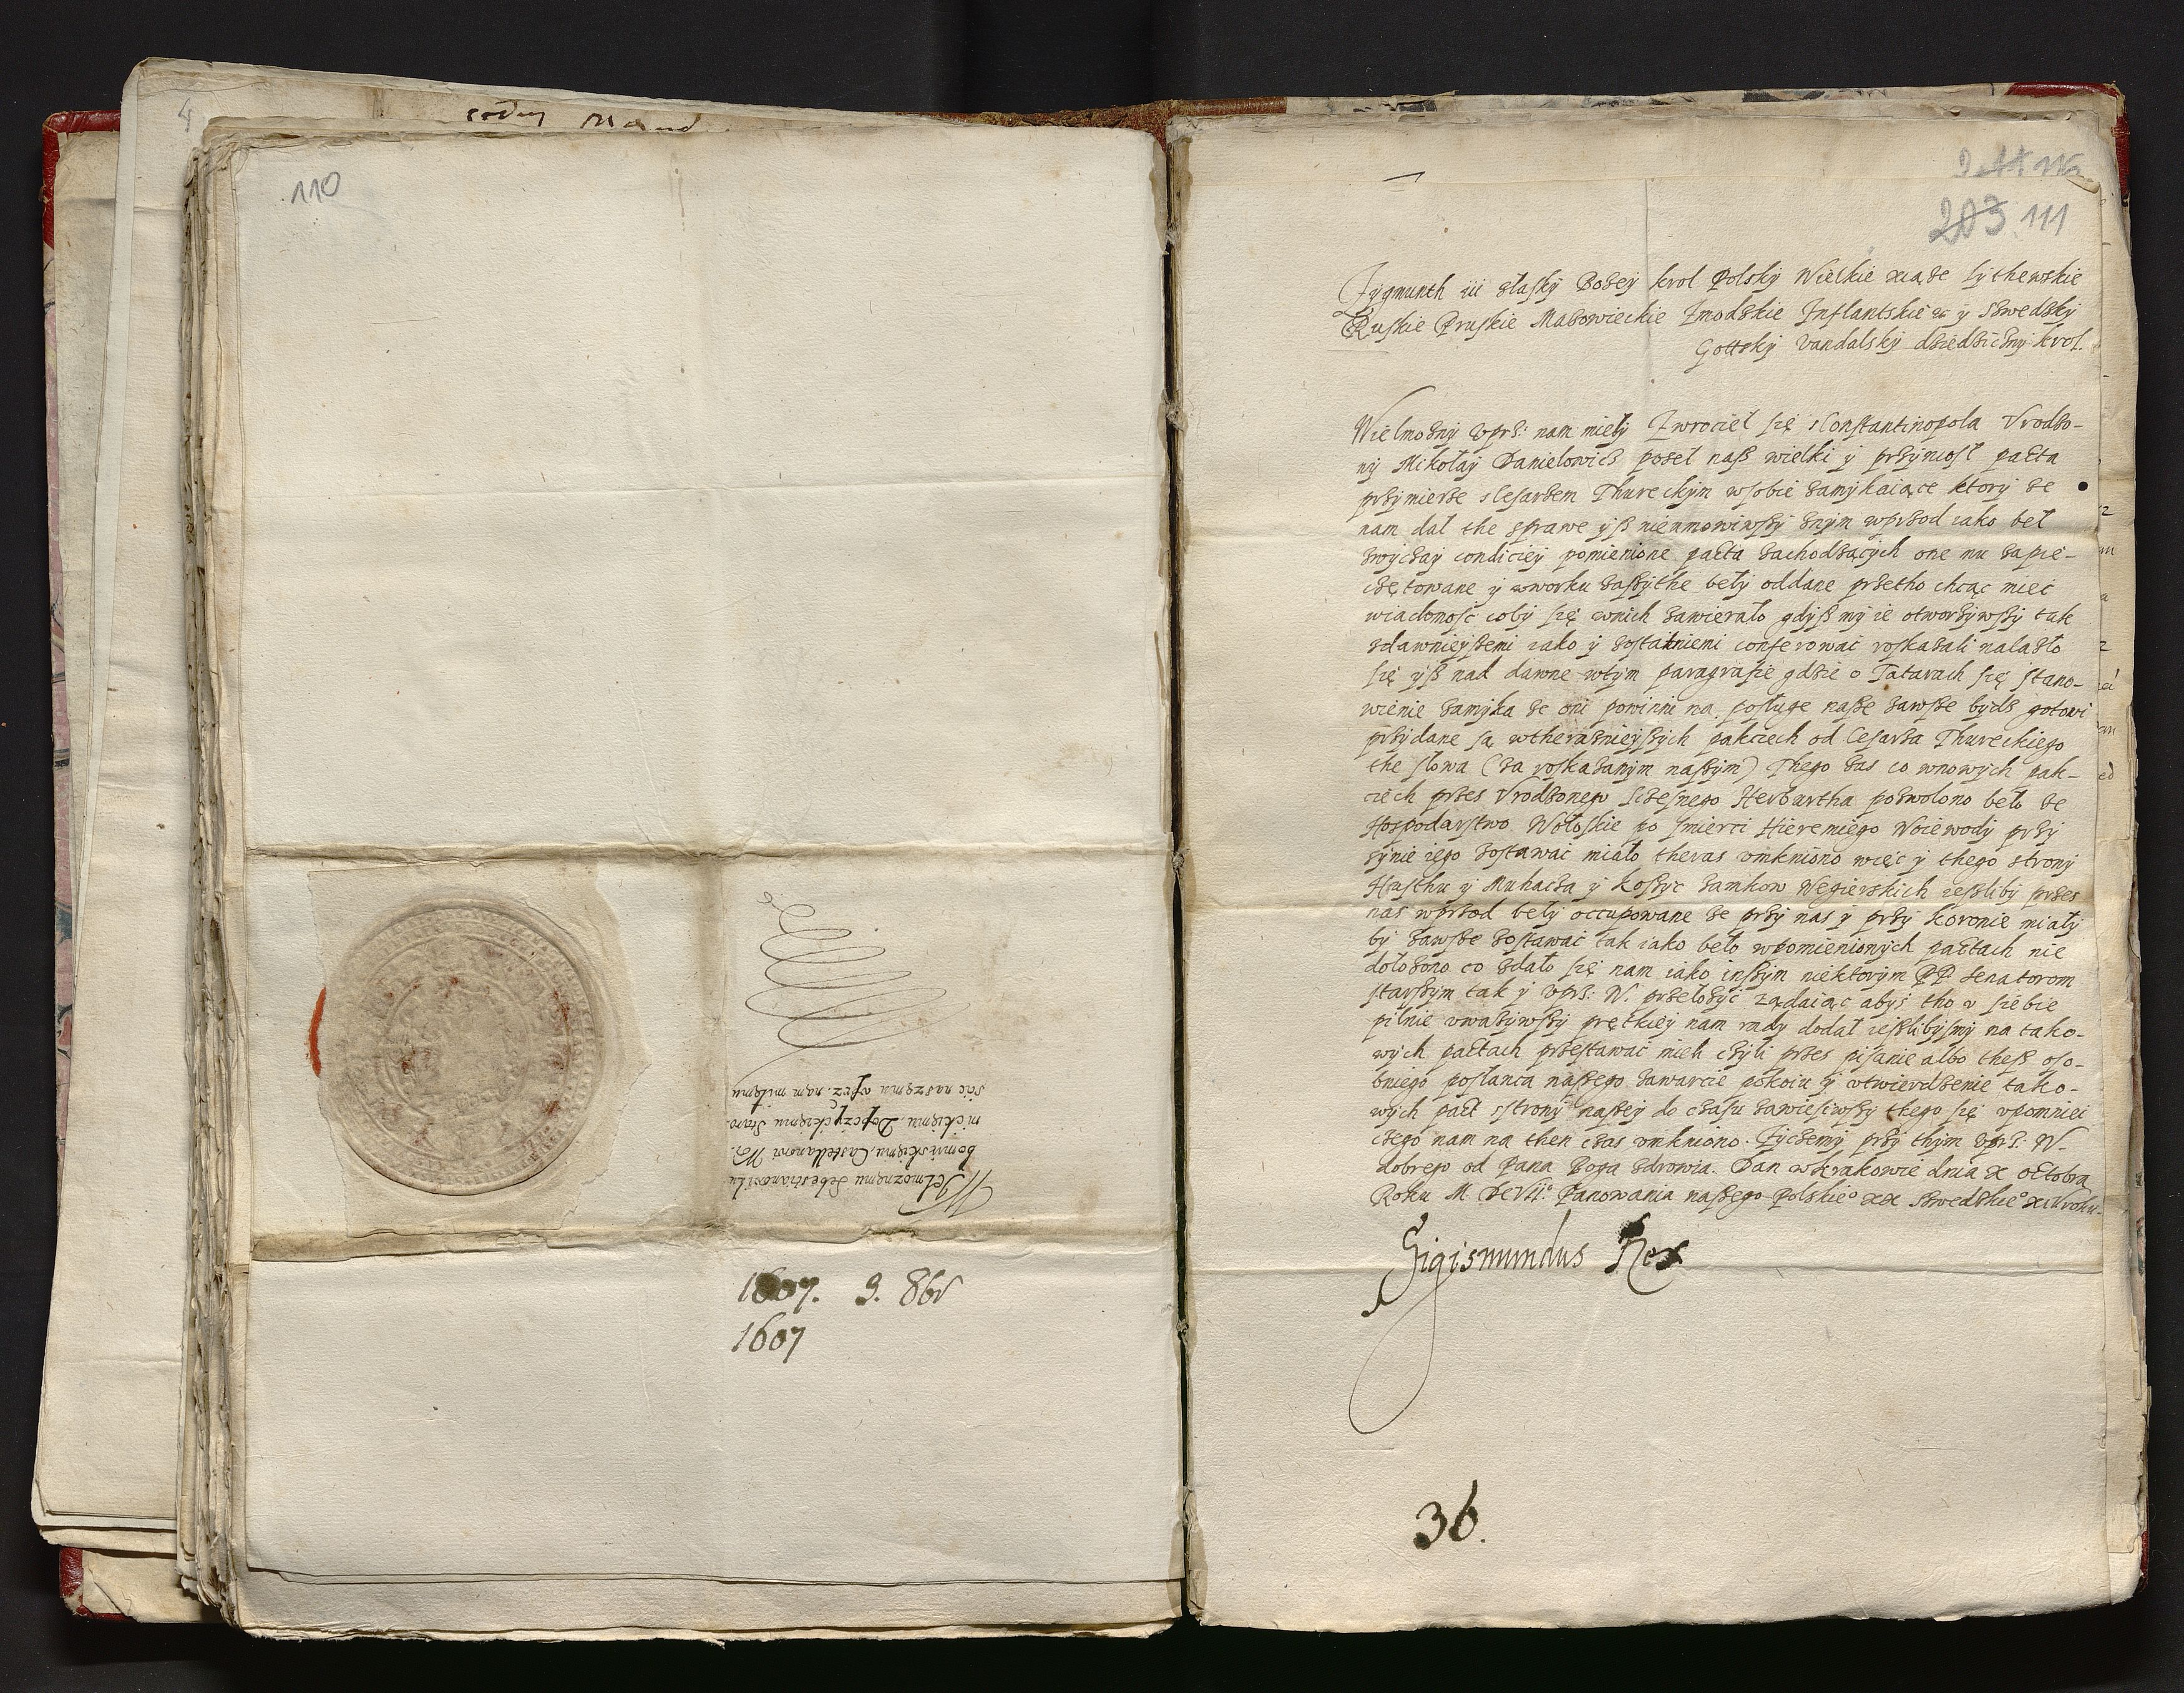 4
eodem Mand
110
Wjelmoznęmu Sebestianowi Lu
bomirskięmu, Castellanowi Woj.
nickięmu, Dopczyckięmu Staro-
ście naszęmu uprz. nąm miłęmu
1607. 9. 8br
1607
203 111
Zygmunth iii z łaski Bozey krol Polsky Wielkie xiąze lythewskie
Ruskie Pruskie Mazowieckie Zmodzkie Inflantskie &c y Szwedsky
Gottsky Vandalsky dziedziczny krol.
Wielmozny vprz: nam miely Zwrociel się sConstantinopola Vrodzo-
ny Mikołay Danielowicz poseł nasz wielki y przyniosł pacta
przymierze sCesarzem Thureckym wsobie zamykaiące ktory ze
nam dał the sprawe ysz nieumowiwszy snym wprzod iako beł
zwyczay condiciey pomienione pacta zachodzących one mu zapie-
czętowane y wworku zaszythe beły oddane przetho chcąc mieć
wiadomość coby się wnich zawierało gdysz my ie otworzywszy tak
zdawnieyszemi iako y zostatniemi conferować roskazali nalazło
się ysz nad dawne wtym paragrafie gdzie o Tatarach się stano-
wienie zamyka ze oni powinni na posługe nasze zawsze bydz gotowi
przydane są wtheraznieyszych pakciech od Cesarza Thureckiego
the słowa (za roskazanym naszym) Thego zas co wnowych pak-
ciech przes Vrodzonego Sczesnego Herburtha pozwolono beło ze
Hospodarstwo Wołoskie po smierci Hieremiego Woiewody przy
synie iego zostawać miało theras vmkniono więc y thego strony
Husthu y Muhacza y Koszyc zamkow Wegierskich ieszliby przes
nas wprzod beły occupowane ze przy nas y przy koronie miały
by zawsze zostawać tak iako beło wpomienionych pactach nie
dołozono co zdało się nam iako inszym niektorym PP. Senatorom
starszym tak y vprz: W. przełozyć ządaiąc abyś tho v siebie
pilnie vwazywszy prętkiey nam rady dodał ieszlibysmy na tako-
wych pactach przestawać mieli czyli przes pisanie albo thesz oso-
bniego posłanca naszego zawarcie pokoiu y vtwierdzenie tako-
wych pact sstrony naszey do czasu zawiesiwszy thego się vpomniec
czego nam na then czas vmkniono. Zyczemy przy thym vprz: W.
dobrego od Pana Boga zdrowia. Dan wKrakowie dnia x octobra
Roku M. DCVII.° Panowania naszego Polskie° xx Szwedzkie° xiiii roku.
Sigismundus Rex
36.